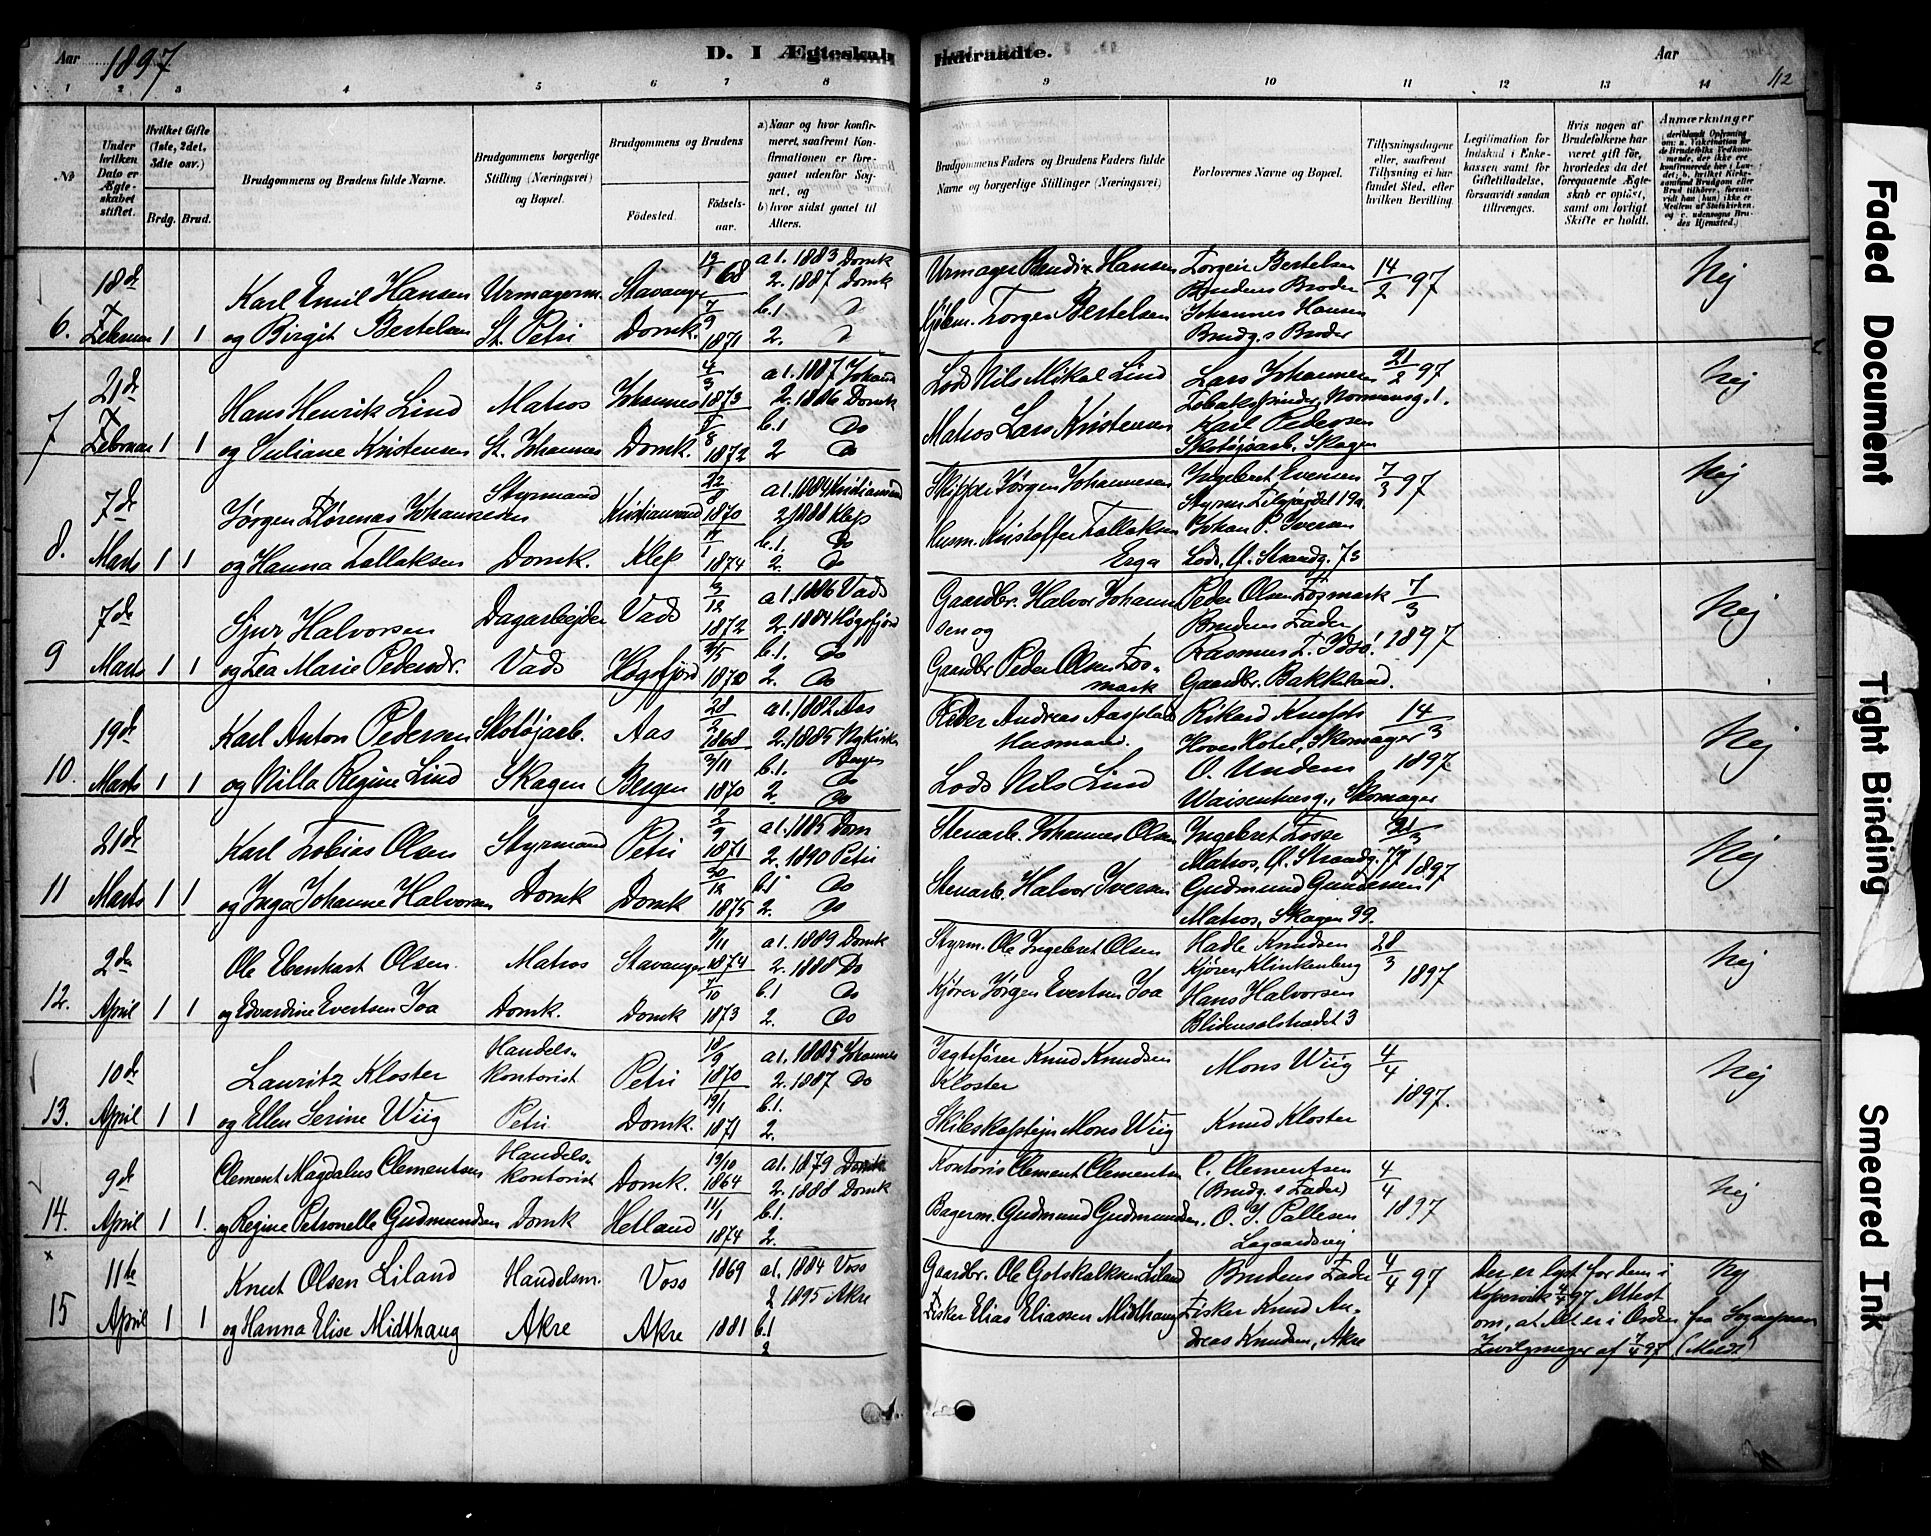 Aar 1897
D. I Ægteskab
Indtraadte.
Aar
112
1 2 3 4 5 6 7 8
9 10 11 12 13 14
No
Under hvilken Dato er Ægteskabet stiftet.
Hvilket Gifte (1ste, 2det, 3dte osv.)
Brdg. Brud.
Brudgommens og Brudens fulde Navne.
Brudgommens borgerlige Stilling (Næringsvei) og Bopæl.
Brudgommens og Brudens
Fødested.
Fødselsaar.
a) Naar og hvor konfirmeret, saafremt Konfirmationen er foregaaet udenfor Sognet, og
b) hvor sidst gaaet til Alters.
Brudgommens Faders og Brudens Faders fulde Navne og borgerlige Stillinger (Næringsvei)
Forlovernes Navne og Bopæl.
Tillysningsdagene eller, saafremt Tillysning ei har fundet Sted, efter hvilken Bevilling.
Legitimation for Indskud i Enkekassen samt for Giftetilladelse, forsaavidt saadan tiltrænges.
Hvis nogen af Brudefolkene har været gift før, hvorledes da det foregaaende Ægteskab er opløst, samt om lovligt Skifte er holdt.
Anmærkninger
6. 18de Februar 1 1
Karl Emil Hansen
og Birgit Bertelsen
Urmagerm.
St. Petri
Stavanger
Domk.
19/1 68
7/9 1871
a1. 1883 Domk
2. 1887 Domk
b.1
2.
Urmager Bendix Hansen
Kjøbm. Torger Bertelsen
Torgein Bertelsen
Brudens Broder
Johannes Hansen
Brudg.s Broder
14/2 97
Nej
7 21de Februar 1 1
Hans Henrik Lind
og Juliane Kristensen
Matros
St. Johannes
Johannes
Domk.
4/3 1873
1872
a1. 1887 Johann
2. 1886 Domk
b.1 Do
2 Do
Lods Nils Mikal Lind
Matros Lars Kristensen
Lars Johannesen
Tobaksspinder, Normannsg. 1.
Karl Pedersen
Skotøjarb. Skagen
21/2 97
Nej
8. 7de Marts 1 1
Jørgen Florenas Johannesen
og Hanna Tallaksen
Styrmand
Domk.
Kristiansund
Klep
1870
1874
a1. 1884 Kristiansund
2. 1888 Klep
b.1. Do
2. Do
Skipper Jørgen Johannesen
Husm. Kristoffer Tallaksen
Erga
Ingebret Evensen
Johan P. Iversen
Lods, Ø. Strandg. 73
7/3 97
Nej
9 7de Marts 1 1
Sjur Halvorsen
og Lea Marie Pedersdr.
Dagarbejder
Vads
Vads
Høgsfjord
3/12 1872
1870
a1. 1886 Vads
2. 1884 Høgsfjord
b.1. Do
2. Do
Gaardbr. Halvor Johannesen og
Gaardbr. Peder Olsen Fosmark
Peder Olsen Fosmark
Brudens Fader
Rasmus T. Idsø.
Gaardbr. Bakkeland.
7/3 1897
Nej
10. 19de Marts 1 1
Karl Anton Pedersen
og Nilla Regine Lind
Skotøjarb.
Skagen
Aas
Bergen
28/2 1868
3/11 1870
a1. 1882 Aas
2. 1885 Nykirk
Bergen
b.1. Do
2. Do
Peder Andreas Aasplad
Husmand.
Lods Nils Lind
Rikard Knophs
Hoves Hotel, Skomager
O. Undens
Waisenhusg., Skomager
14/3 1897
Nej
11 21de Marts 1 1
Karl Tobias Olsen
og Inga Johanne Halvorsen
Styrmand
Domk
Petri
Domk
2/9 1871
30/12 1875
a1. 1885 Dom
2. 1890 Petri
b.1 Do
2. Do
Stenarb. Johannes Olsen
Stenarb. Halvor Iversen
Ingebret Fosse
Matros, Ø. Strandg. 77
Gudmund Gundersen
Matros, Skagen 39.
21/3 1897
Nej
12. 2den April 1 1
Ole Ebenhart Olsen.
og Edvardine Evertsen Ioa
Matros
Domk.
Stavanger
Domk
1874
7/10 1873
a1. 1889 Domk
2. 1888 Do
b.1 Do
2. Do
Styrm. Ole Ingebret Olsen
Kjører Jørgen Evertsen Ioa
Hadle Knudsen
Kjører, Klinkenberg
Hans Halvorsen
Blidensolstrædet 3
28/3 1897
Nej
13. 10de April 1 1
Lauritz Kloster
og Ellen Serine Wiig
Handelskontorist
Petri
Petri
Domk.
18/9 1870
19/1 1871
a1. 1885 Johannes
2. 1887 Do
b.1.
2.
Jagtefører Knud Knudsen
Kloster
Skibskaptejn Mons Wiig
Mons Wiig
Knud Kloster
4/4 1897.
Nej
14. 9de April 1 1.
Clement Magdalus Clementsen
og Regine Petronelle Gudmundsen
Handelskontorist
Domk
Domk.
Hetland
19/10 1864
11/1 1874
a1. 1879 Domk
2. 1888 Domk
b.1.
2.
Kontoris Clement Clementsen
Bagerm. Gudmund Gudmundsen.
C. Clementsen
(Brudg.s Fader)
O. J. Pallesen
Lagaardsvej
4/4 1897
Nej
15 11te April 1 1
Knut Olsen Liland
og Hanna Elise Midthaug
Handelsm.
Akre
Voss
Akre
1869
1881
a1. 1884 Voss
2 1895 Akre
b.1
2
Gaardbr. Ole Gotskalksen Liland
Fisker Elias Eliassen Midthaug
Brudens Fader
Fisker Knud Andreas Knudsen, Akre
4/4 97
Der er lyst for dem i
Kopervik 4/4 97. Attest
om, at Alt er i Orden fra Sognepræn
7/4 97 (Meldt)
Nej
Faded Document
Tight Binding
Smeared Ink